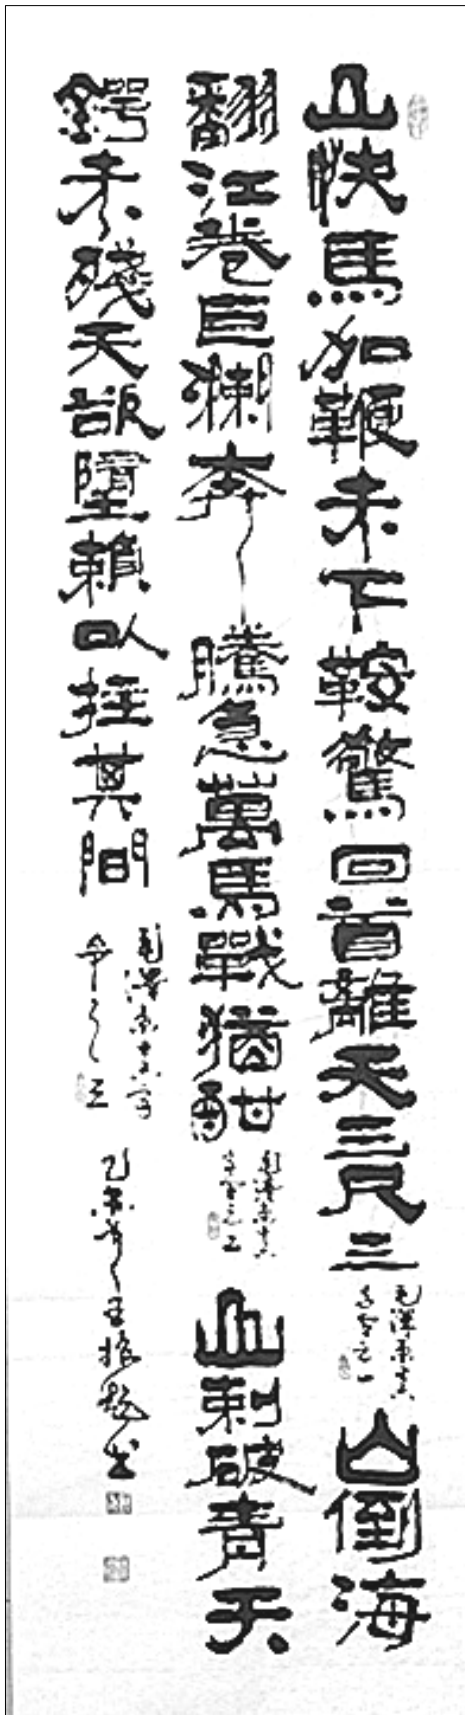 山快馬加鞭未下鞍驚回首離天三尺三
毛澤東十六
字令之一
山倒海
翻江卷巨瀾奔騰急萬馬戰猶酣
毛澤東十六
字令之二
山刺破青天
鍔未殘天欲墮賴以拄其間
毛澤東十六字
令之三
乙亥 王振 書